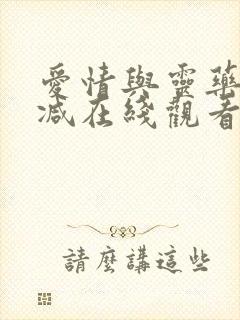 愛情與靈藥
減在綫觀看
請麼講這些